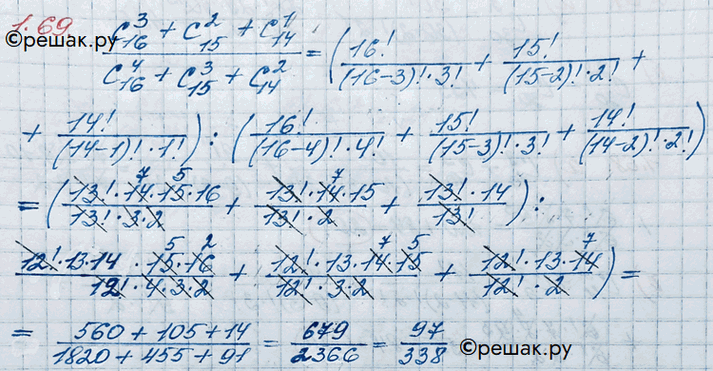 1.69
©решак.ру
(C₁₆³ + C₁₅² + C₁₄¹) / (C₁₆⁴ + C₁₅³ + C₁₄²) = ( 16! / ((16-3)!·3!) + 15! / ((15-2)!·2!) +
+ 14! / ((14-1)!·1!) ) : ( 16! / ((16-4)!·4!) + 15! / ((15-3)!·3!) + 14! / ((14-2)!·2!) )
= ( 13!·14·15·16 / (13!·3·2) 7 5 + 13!·14·15 / (13!·2) 7 + 13!·14 / 13! ) :
12!·13·14·15·16 / (12!·4·3·2) 5 2 + 12!·13·14·15 / (12!·3·2) 7 5 + 12!·13·14 / (12!·2) 7 ) =
= (560 + 105 + 14) / (1820 + 455 + 91) = 679 / 2366 = 97 / 338 ©решак.ру